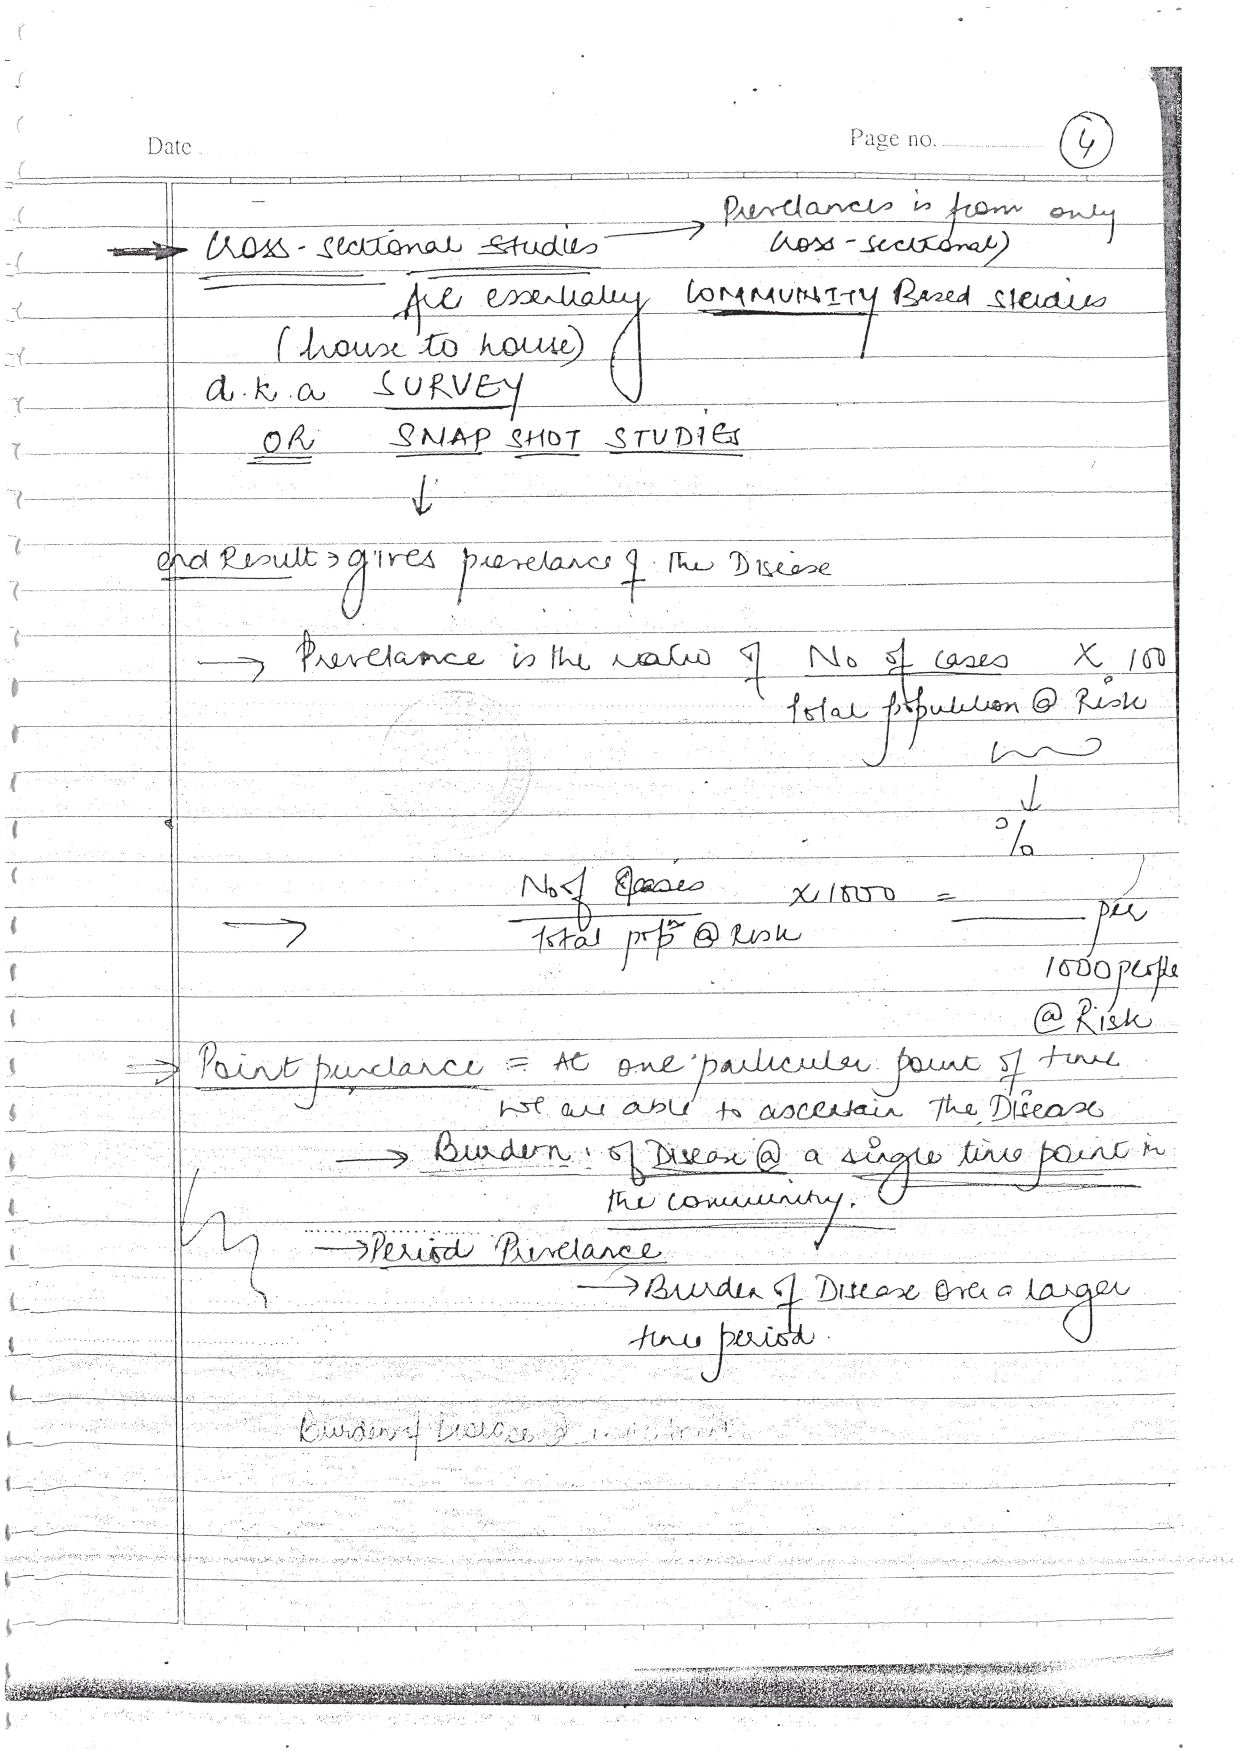 Date
Page no. 4
Prevelances is from only
→ Cross-sectional studies → cross-sectional)
Are essentially COMMUNITY Based studies
(house to house)
a.k.a SURVEY
OR SNAP SHOT STUDIES
↓
end Result → gives prevelance of the Disease
→ Prevelance is the ratio of No of cases X 100
total population @ Risk
↓
%
No of cases X 1000 = ______ per
→ total popn @ Risk
1000 people
@ Risk
→ Point prevelance = At one particular point of time
we are able to ascertain the Disease
→ Burden of Disease @ a single time point in
the community.
→ Period Prevelance
→ Burden of Disease over a larger
time period.
Burden of Disease